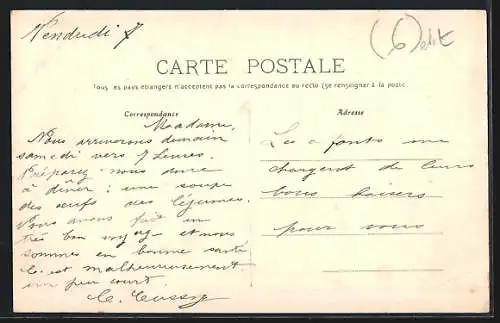 Vendredi 7
(6) ebt
CARTE POSTALE
Tous les pays étrangers n'acceptent pas la correspondance au recto (Se renseigner à la poste)
Correspondance
Adresse
Madame,
Nous arriverons demain
samedi vers 7 heures.
Préparez nous donc
à dîner : une soupe
des œufs des légumes.
Nous avons fait un
très bon voyage et nous
sommes en bonne santé
C'est malheureusement
un peu court.
Les enfants me
chargent de leurs
bons baisers
pour vous